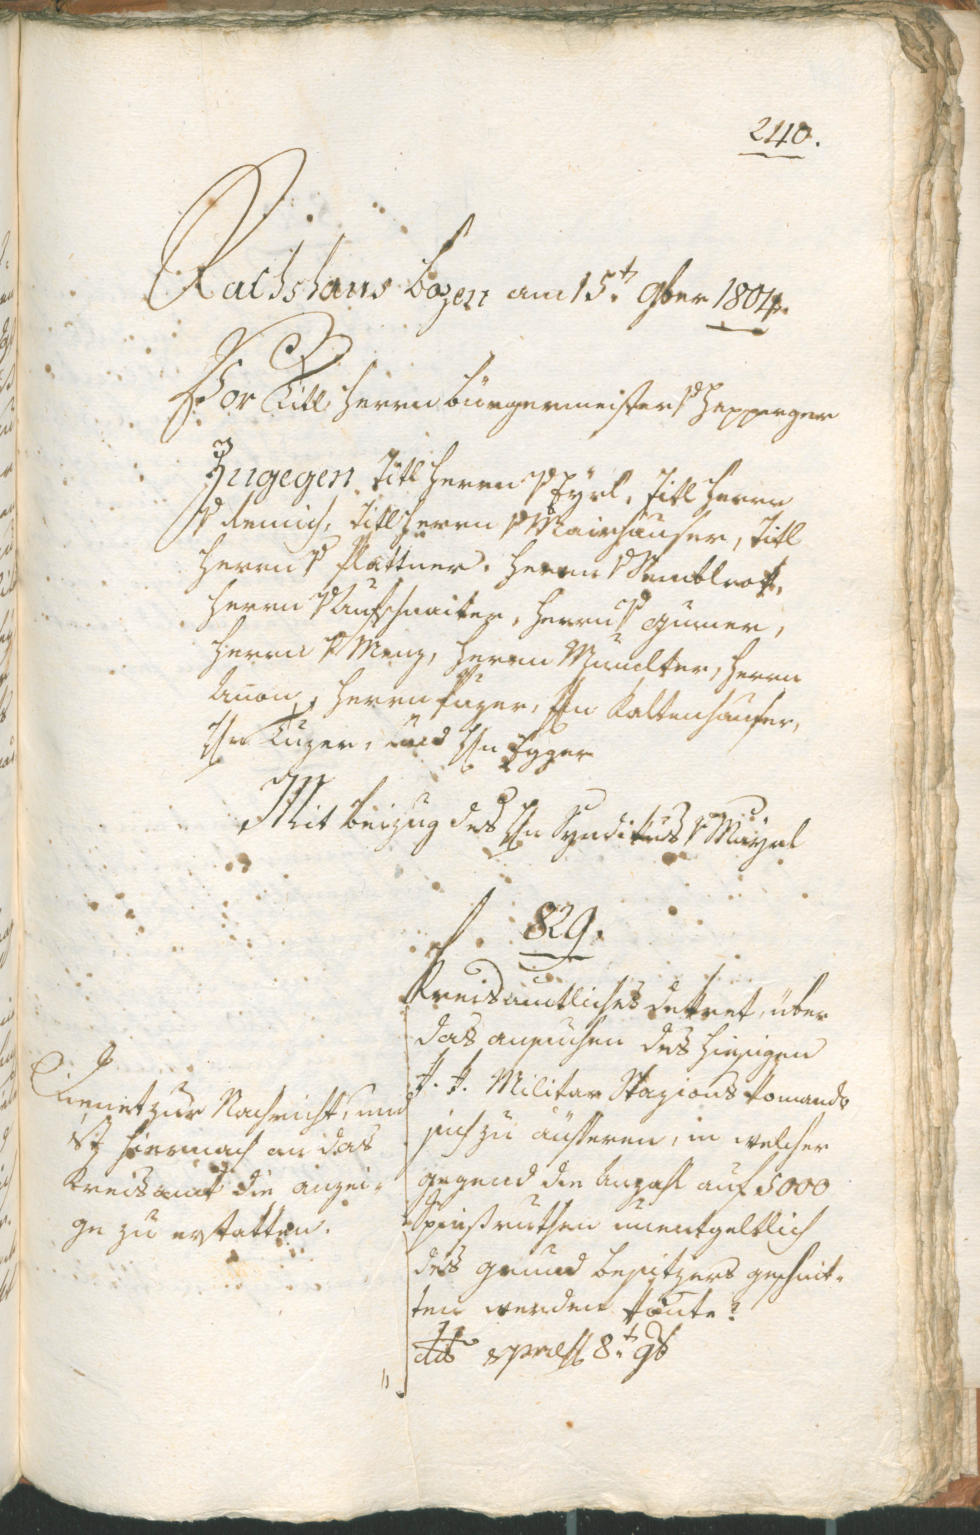 240.
Rathshaus Bozen am 15.t 9ber 1804.
Vor Titl Herrn Bürgermeister v Hepperger
Zugegen Titl Herrn v Eyrl, Titl Herrn
v Remich, Titl Herrn v Mairhauser, Titl
Herrn v Plattner. Herrn v
Herrn v Aufschnaiter, Herrn v Gumer,
Herrn v Menz, Herrn Mumelter, Herrn
Herrn Putzer, Hn Kaltenhauser,
Hn Kuzer, und Hn Egger
Mit Beizug des Hn Syndikus v Mayrl
829.
Kreisamtliches Dekret, über
das ansuchen des hiesigen
k. k. Militar Stazions komando
sich zu äusseren, in welcher
gegend die Anzahl auf 5000
Spießruthen unentgeltlich
des grund besitzers geschnit-
ten werden könte?
dto 8.t 9b
Dienet zur Nachricht, und
ist hiernach an das
Kreisamt die anzei-
ge zu erstatten.